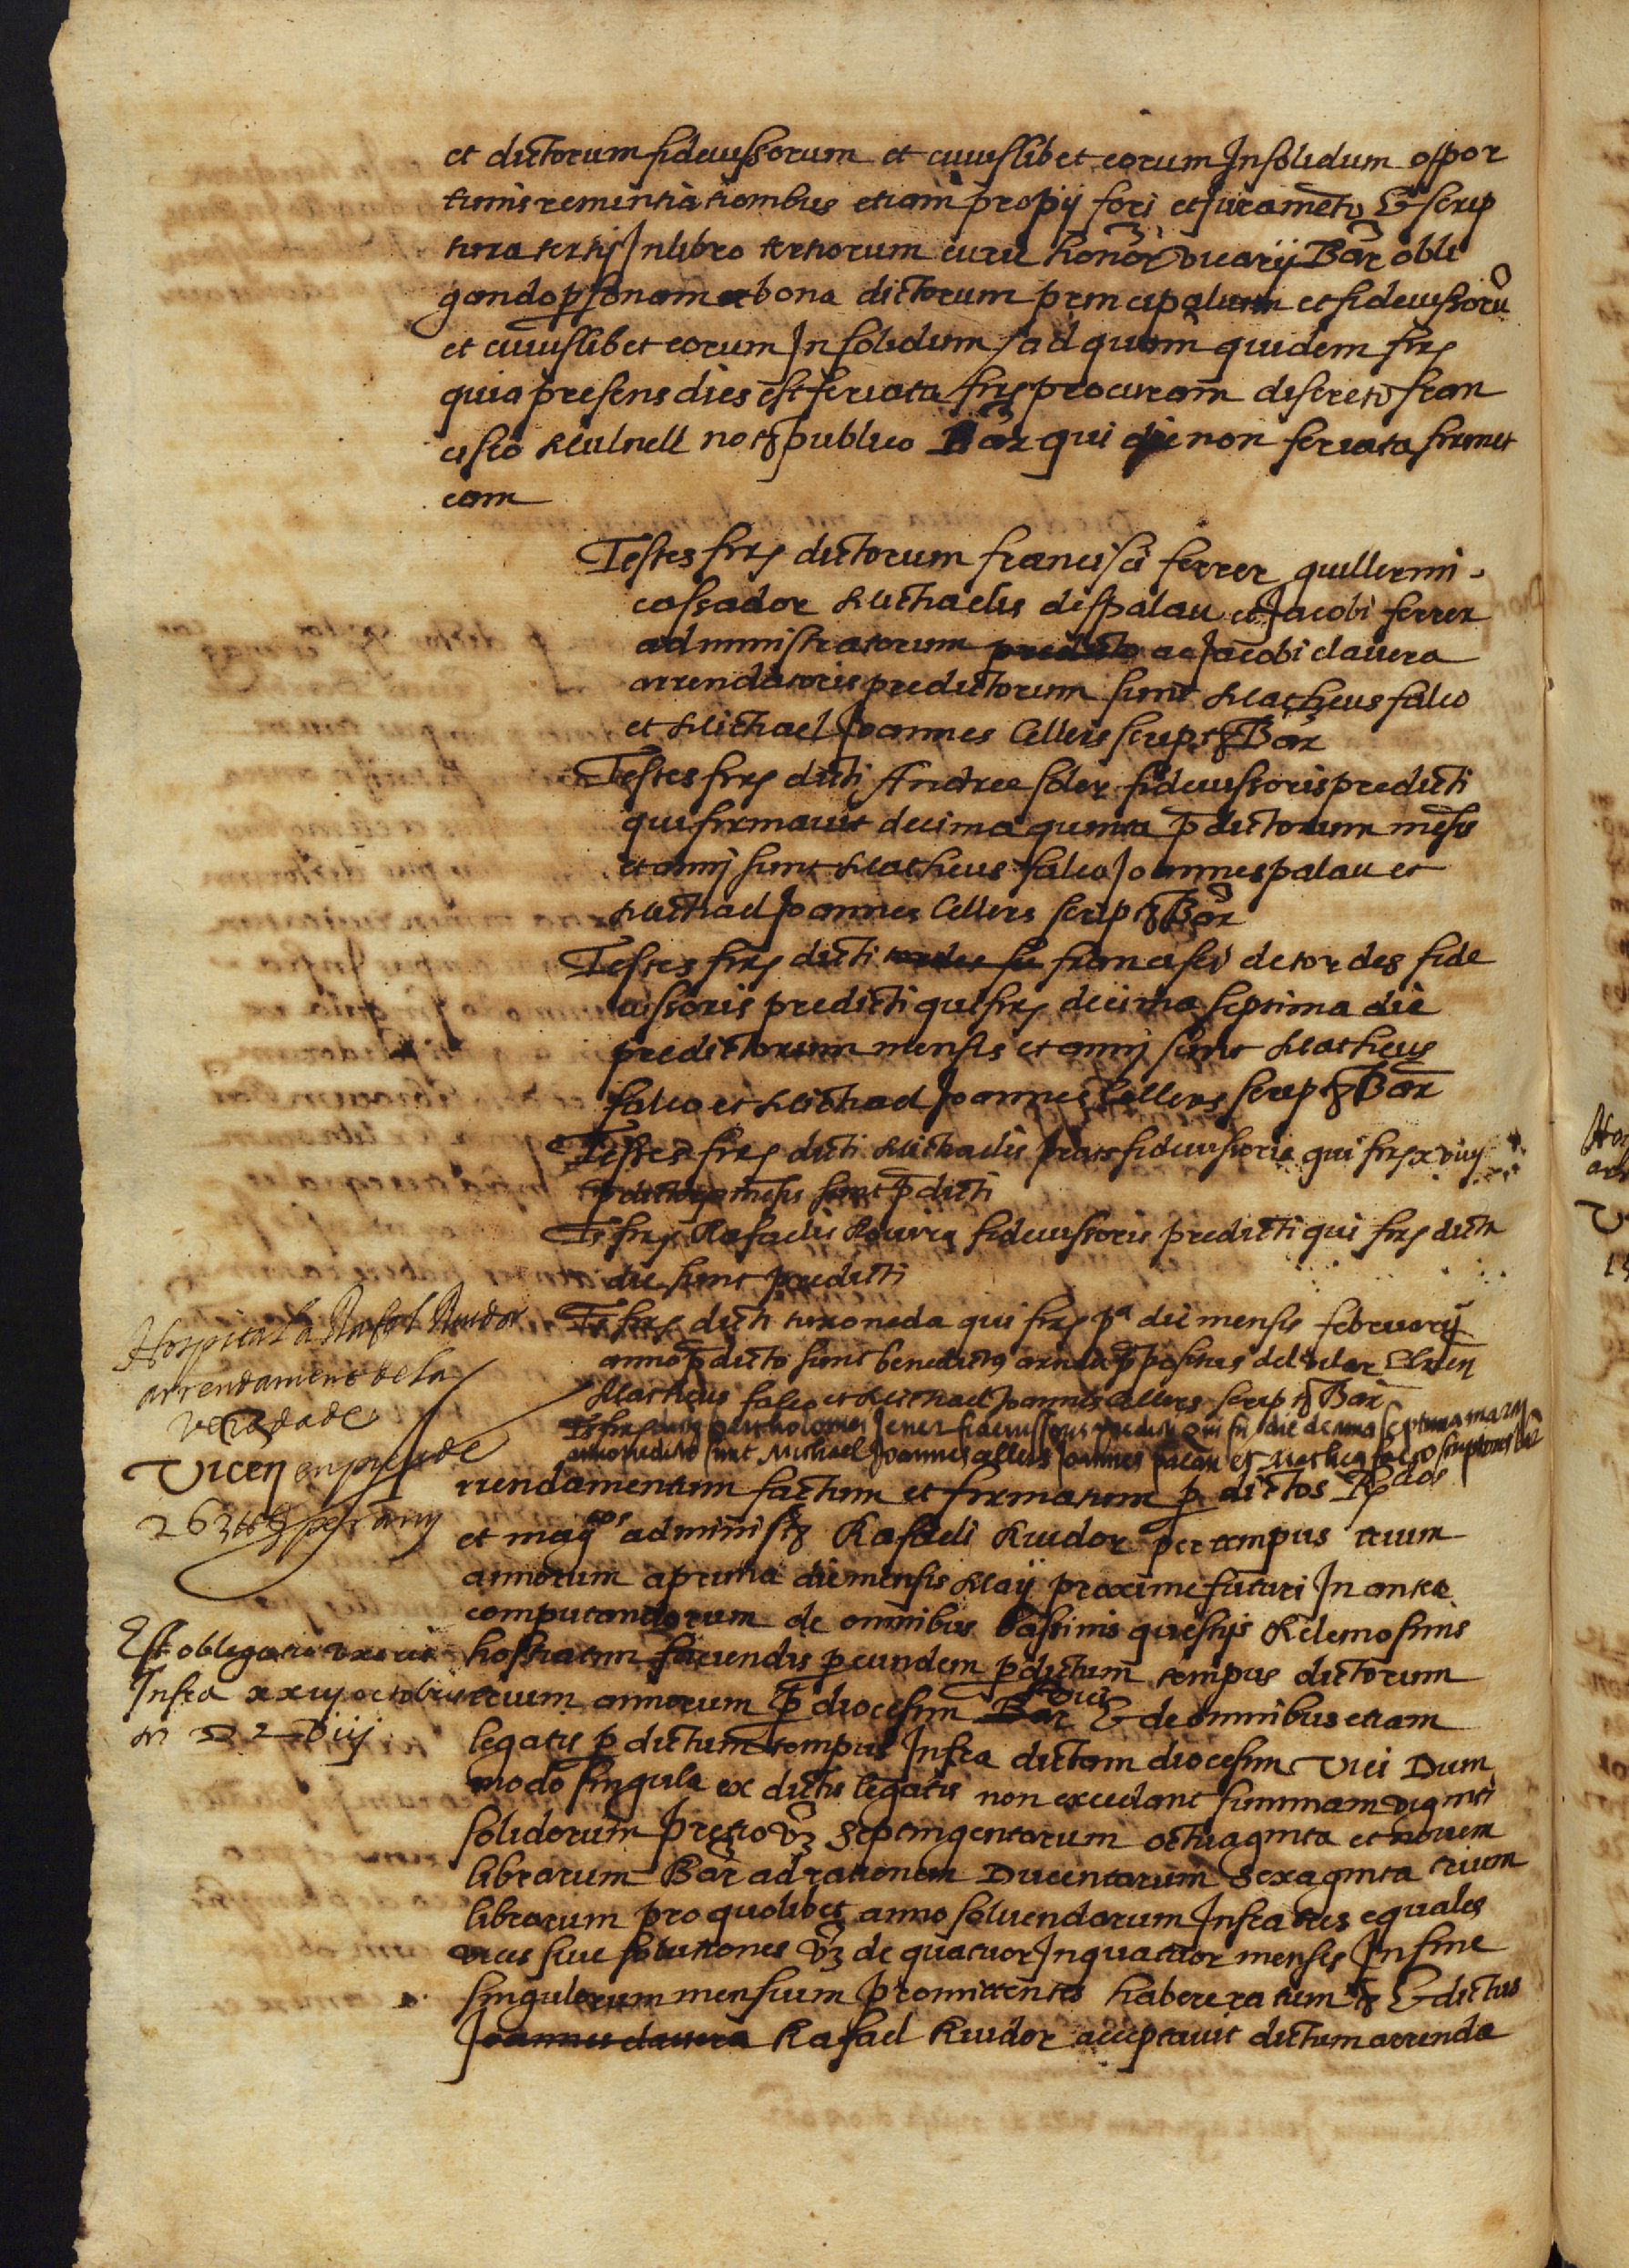 et dictorum fideiussorum et cuiuslibet eorum Insolidum oppor
tunis renuntiationibus etiam propij fori et Juramēto & scrip
tura tertij In libro tertiorum curie honor vicarij Bar obli
gando p̄sonam et bona dictorum principalium et fideiussorū
et cuiuslibet eorum In solidum / ad quam quidem firẹ
quia presens dies est feriata firẹ procuram discreto fran
cisco Mulnell not publico Bar qui die non feriata firmet
eam
Testes firẹ dictorum francisci ferrer guillermi
cassador Michaelis despalau et Jacobi ferrer
administratorum ac Jacobi clavera
arrendatoris predictorum sunt Matheus falco
et Michael Joannes Cellers script Bar
Testes firẹ dicti Andree soler fideiussoris predicti
qui firmavit decima quinta p̄dictorum mēsis
et anni sunt Matheus falco Joannes palau et
Michael Joannes Cellers script Bar
Testes firẹ dicti francisci de tordes fide
iussoris predicti qui firẹ decima septima die
predictorum mensis et anni sunt Matheus
falco et Michael Joannes Cellers script Bar
Testes firẹ dicti Michaelis prats fideiussoris qui firẹ xviiij
p̄dictorū mēsis sunt p̄dicti
Ts firẹ Rafaelis Rovira fideiussoris predicti qui firẹ dicta
die sunt predicti
Ts firẹ dicti turoneda qui firẹ pª die mensis februarij
anno p̄dicto sunt benedictus p̄positus del vilar
Matheus falco et Michael Joannes Cellers script Bar
Ts firẹ Bartholomei Jener fideiussoris predicti qui fir die decima septima marcij
anno predicto sunt Michael Joannes cellers Joannes palau et Matheus falco scriptores Bar
Hospital a Rafel Riudor
arrendament de la
Vicen en preu de
263 ll per any
rrendamentum factum et firmatum p̄ dictos R̄dos
et magcos administ Rafaeli Riudor per tempus trium
annorum a prima die mensis Maij proxime futuri In antea
computandorum de omnibus bassinis questijs & elemosinis
hostiatim faciendis p̄ eundem p̄dictum tempus dictorum
trium annorum p̄ diocesim Bar Vici & de omnibus etiam
legatis p̄ dictum tempus Infra dictam diocesim Vici Dum
modo singula ex dictis legatis non excedant summam viginti
solidorum Pretio vz septingentarum octuaginta et novem
librarum Bar ad rationem Ducentarum sexaginta trium
librarum pro quolibet anno solvendarum Infra tres equales
vices sive solutiones vz de quatuor In quatuor menses In fine
singulorum mensium promittentes habere ratum & dictus
Joannes clavera Rafael Riudor acceptavit dictum arrenda
Est obligatio uxoris
Infra xxiij octobris